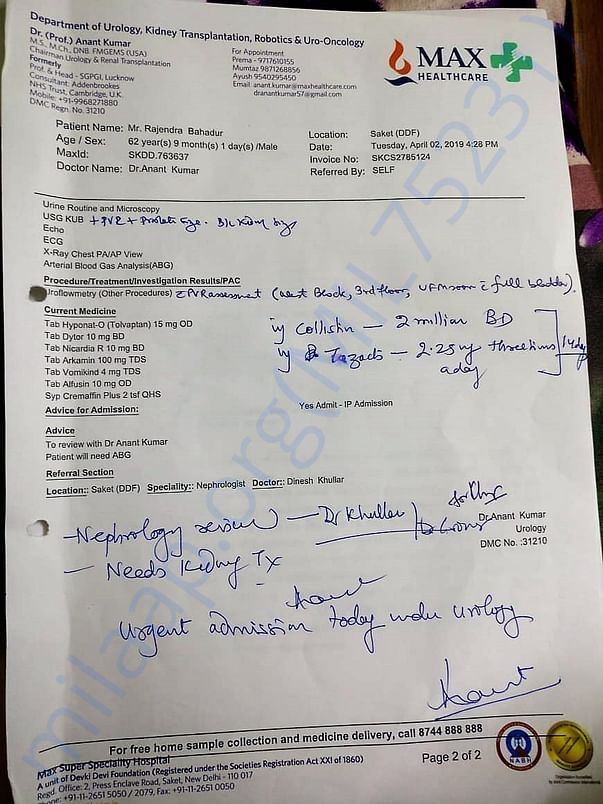 Department of Urology, Kidney Transplantation, Robotics & Uro-Oncology
Dr. (Prof.) Anant Kumar
M.S., M.Ch., DNB, FMGEMS (USA)
Chairman Urology & Renal Transplantation
Formerly
Prof. & Head - SGPGI, Lucknow
Consultant: Addenbrookes
NHS Trust, Cambridge, U.K.
Mobile: +91-9968271880
DMC Regn. No. 31210
For Appointment
Prema - 9717610155
Mumtaz 9871268856
Ayush 9540295450
Email: anant.kumar@maxhealthcare.com
dranantkumar57@gmail.com
MAX
HEALTHCARE
Patient Name: Mr. Rajendra Bahadur
Age / Sex: 62 year(s) 9 month(s) 1 day(s) /Male
MaxId: SKDD.763637
Doctor Name: Dr.Anant Kumar
Location: Saket (DDF)
Date: Tuesday, April 02, 2019 4:28 PM
Invoice No: SKCS2785124
Referred By: SELF
Urine Routine and Microscopy
USG KUB + PVR + Prostate size. B/L Kidney
Echo
ECG
X-Ray Chest PA/AP View
Arterial Blood Gas Analysis(ABG)
Procedure/Treatment/Investigation Results/PAC
Uroflowmetry (Other Procedures) PVR assessment (West Block, 3rd floor, full bladder).
Current Medicine
Tab Hyponat-O (Tolvaptan) 15 mg OD
Tab Dytor 10 mg BD
Tab Nicardia R 10 mg BD
Tab Arkamin 100 mg TDS
Tab Vomikind 4 mg TDS
Tab Alfusin 10 mg OD
Syp Cremaffin Plus 2 tsf QHS
inj Collistin — 2 million BD
inj Tazact — 2.25 three times a day
14 day
Advice for Admission: Yes Admit - IP Admission
Advice
To review with Dr Anant Kumar
Patient will need ABG
Referral Section
Location:: Saket (DDF) Speciality:: Nephrologist Doctor:: Dinesh Khullar
Dr.Anant Kumar
Urology
DMC No. :31210
- Nephrology review — Dr Khullar
- Needs Kidney Tx
Urgent admission today under urology
For free home sample collection and medicine delivery, call 8744 888 888
Max Super Speciality Hospital
A unit of Devki Devi Foundation (Registered under the Societies Registration Act XXI of 1860)
Regd. Office: 2, Press Enclave Road, Saket, New Delhi - 110 017
Phone: +91-11-2651 5050 / 2079, Fax: +91-11-2651 0050
Page 2 of 2
NABH